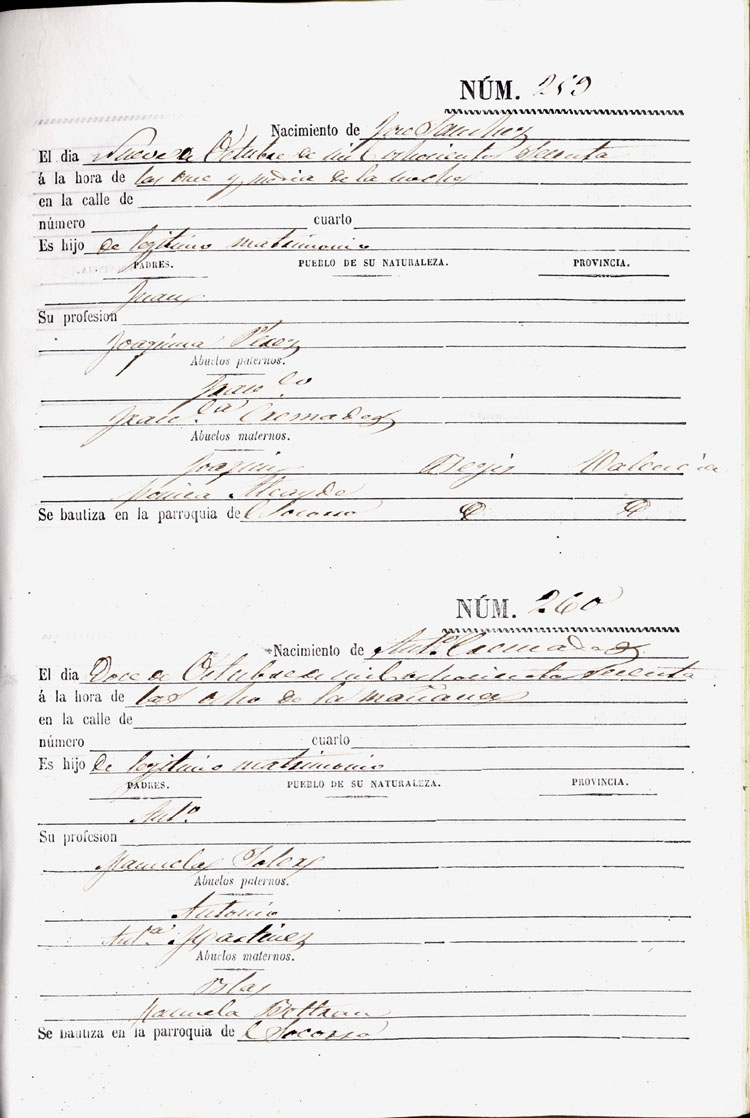 NÚM. 259
Nacimiento de José Sanchez
El dia Nueve de Octubre de mil ochocientos Secenta
á la hora de las once y media de la noche
en la calle de
número cuarto
Es hijo de legitimo matrimonio
PADRES. PUEBLO DE SU NATURALEZA. PROVINCIA.
Juan
Su profesion
Joaquina Perez
Abuelos paternos.
Fran.co
Fran.ca Cremades
Abuelos maternos.
Joaquin Valencia
Monica
Se bautiza en la parroquia de l Socorro
NÚM. 260
Nacimiento de Ant.o Cremades
El dia Doce de Octubre de mil ochocientos Secenta
á la hora de las ocho de la mañana
en la calle de
número cuarto
Es hijo de legitimo matrimonio
PADRES. PUEBLO DE SU NATURALEZA. PROVINCIA.
Ant.o
Su profesion
Manuela Soler
Abuelos paternos.
Antonio
Ant.a Martinez
Abuelos maternos.
Blas
Manuela Beltran
Se bautiza en la parroquia de l Socorro